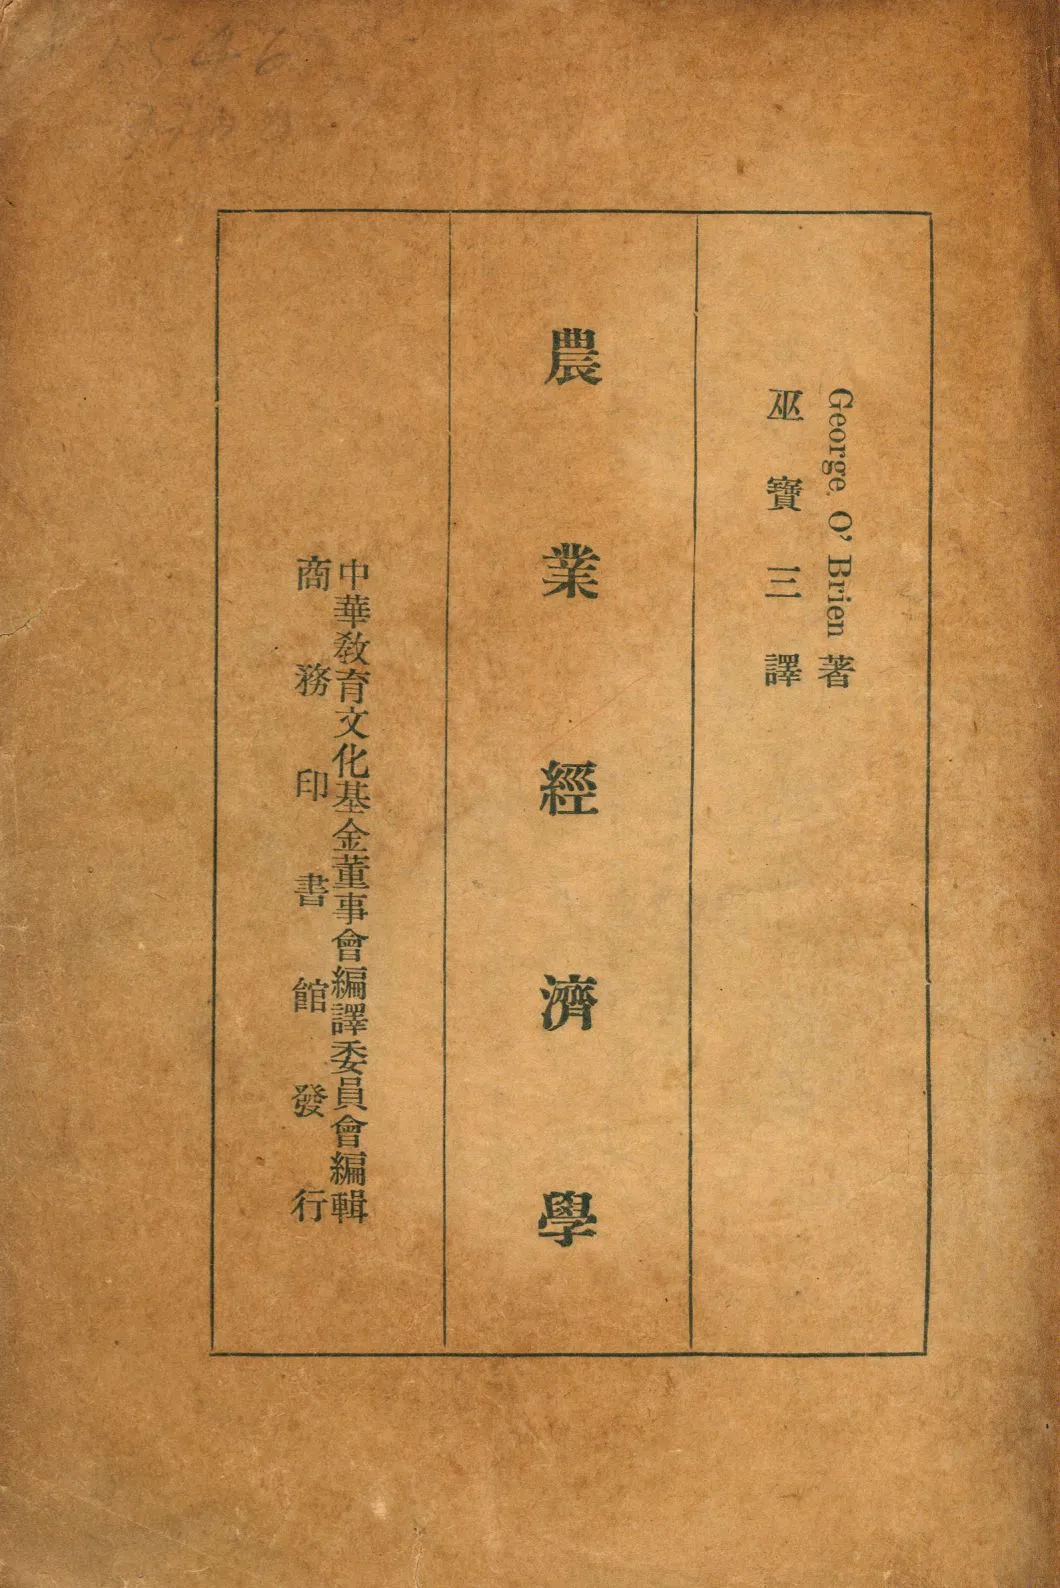 George O'Brien 著
巫寶三譯
農業經濟學
中華教育文化基金董事會編譯委員會編輯
商務印書館發行